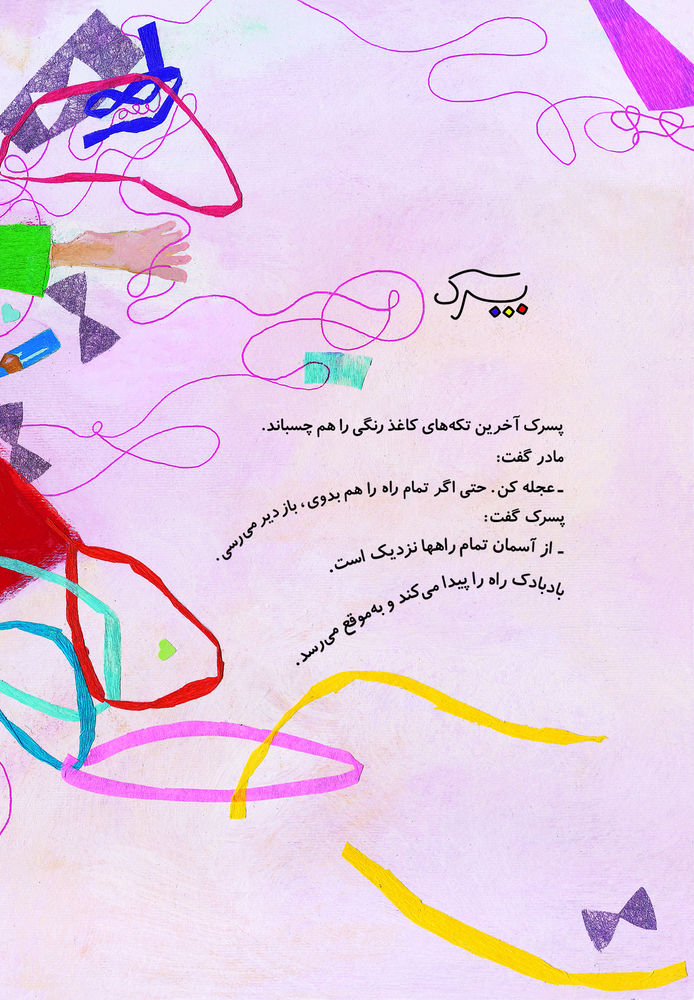 پسرک
پسرک آخرین تکه‌های کاغذ رنگی را هم چسباند.
مادر گفت:
ـ عجله کن. حتی اگر تمام راه را هم بدوی، باز دیر می‌رسی.
پسرک گفت:
ـ از آسمان تمام راهها نزدیک است.
بادبادک راه را پیدا می‌کند و به‌موقع می‌رسد.